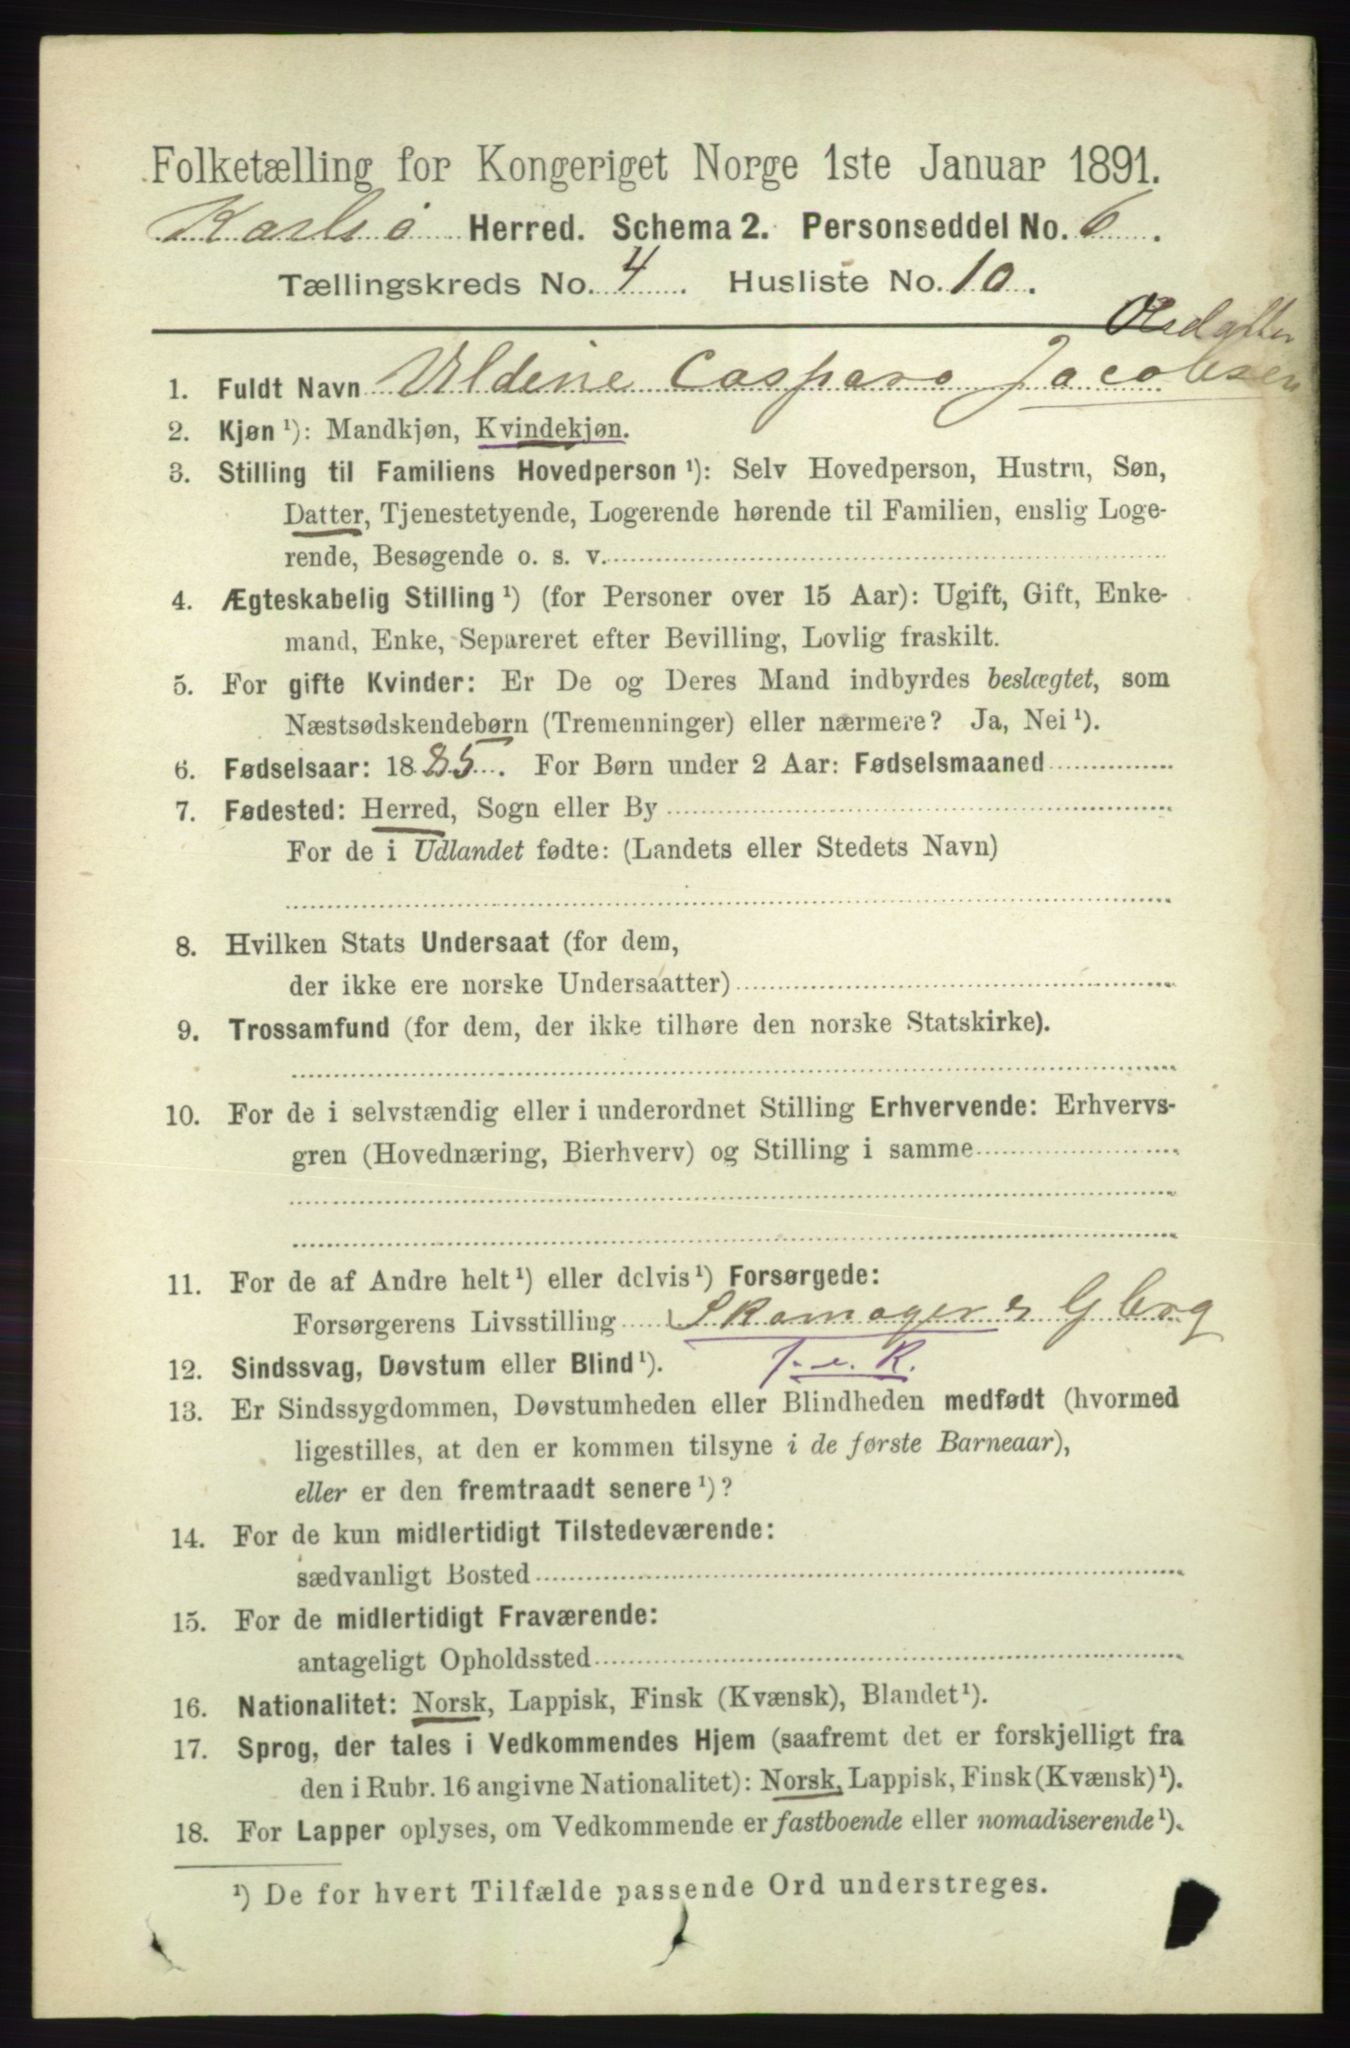 Folketælling for Kongeriget Norge 1ste Januar 1891.
Karlsø Herred. Schema 2. Personseddel No. 6.
Tællingskreds No. 4. Husliste No. 10.
Olsdatter
1. Fuldt Navn Uldine Caspara Jacobsen
2. Kjøn ¹): Mandkjøn, Kvindekjøn.
3. Stilling til Familiens Hovedperson ¹): Selv Hovedperson, Hustru, Søn,
Datter, Tjenestetyende, Logerende hørende til Familien, enslig Loge-
rende, Besøgende o. s. v.
4. Ægteskabelig Stilling ¹) (for Personer over 15 Aar): Ugift, Gift, Enke-
mand, Enke, Separeret efter Bevilling, Lovlig fraskilt.
5. For gifte Kvinder: Er De og Deres Mand indbyrdes beslægtet, som
Næstsødskendebørn (Tremenninger) eller nærmere? Ja, Nei ¹).
6. Fødselsaar: 1885. For Børn under 2 Aar: Fødselsmaaned
7. Fødested: Herred, Sogn eller By
For de i Udlandet fødte: (Landets eller Stedets Navn)
8. Hvilken Stats Undersaat (for dem,
der ikke ere norske Undersaatter)
9. Trossamfund (for dem, der ikke tilhøre den norske Statskirke).
10. For de i selvstændig eller i underordnet Stilling Erhvervende: Erhvervs-
gren (Hovednæring, Bierhverv) og Stilling i samme
11. For de af Andre helt ¹) eller delvis ¹) Forsørgede:
Forsørgerens Livsstilling Skomager
12. Sindssvag, Døvstum eller Blind ¹). f. e. R.
13. Er Sindssygdommen, Døvstumheden eller Blindheden medfødt (hvormed
ligestilles, at den er kommen tilsyne i de første Barneaar),
eller er den fremtraadt senere ¹)?
14. For de kun midlertidigt Tilstedeværende:
sædvanligt Bosted
15. For de midlertidigt Fraværende:
antageligt Opholdssted
16. Nationalitet: Norsk, Lappisk, Finsk (Kvænsk), Blandet ¹).
17. Sprog, der tales i Vedkommendes Hjem (saafremt det er forskjelligt fra
den i Rubr. 16 angivne Nationalitet): Norsk, Lappisk, Finsk (Kvænsk) ¹).
18. For Lapper oplyses, om Vedkommende er fastboende eller nomadiserende ¹).
¹) De for hvert Tilfælde passende Ord understreges.